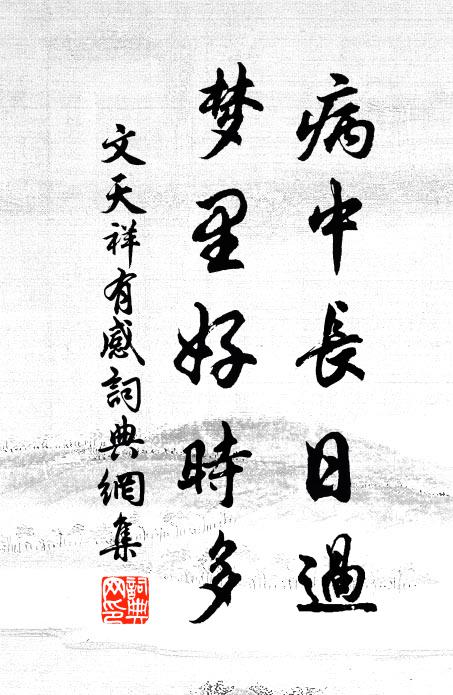 病中長日過
梦里好時多
文天祥有感詞典網集
詞典
网印